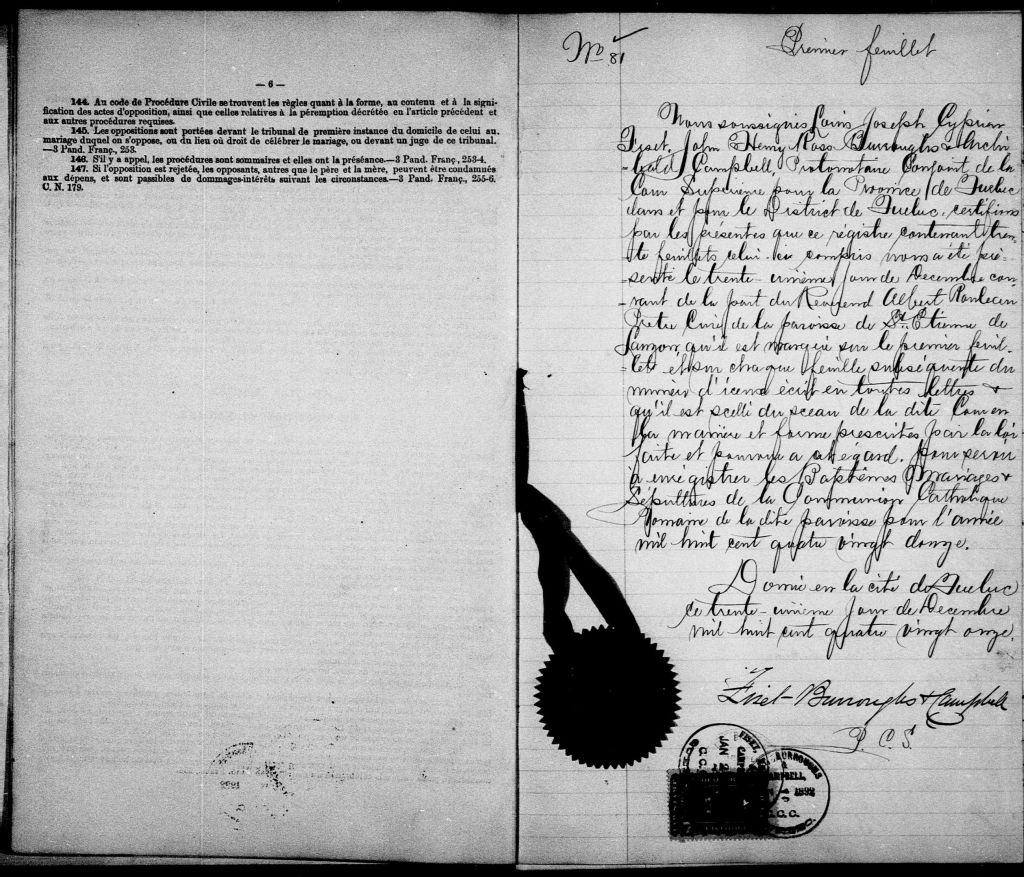 — 6 —
144. Au code de Procédure Civile se trouvent les règles quant à la forme, au contenu et à la signi-
fication des actes d'opposition, ainsi que celles relatives à la péremption décrétée en l'article précédent et
aux autres procédures requises.
145. Les oppositions sont portées devant le tribunal de première instance du domicile de celui au
mariage duquel on s'oppose, ou du lieu où droit de célébrer le mariage, ou devant un juge de ce tribunal.
—3 Pand. Franç., 253.
146. S'il y a appel, les procédures sont sommaires et elles ont la préséance.—3 Pand. Franç., 253-4.
147. Si l'opposition est rejetée, les opposants, autres que le père et la mère, peuvent être condamnés
aux dépens, et sont passibles de dommages-intérêts suivant les circonstances.—3 Pand. Franç., 255-6.
C. N. 179.
No 81
Premier feuillet
Nous soussignés Louis Joseph Cyprien
Fiset, John Henry Ross Burroughs & Archi-
-bald Campbell, Protonotaire Conjoint de la
Cour Supérieure pour la Province de Quebec
dans et pour le District de Quebec, certifions
par les présentes que ce régistre contenant tren-
-te feuillets celui-ci compris nous a été pré-
-senté le trente-unième jour de Decembre cou-
-rant de la part du Révérend Albert Rouleau
Prêtre Curé de la paroisse de St. Etienne de
Lauzon qu'il est marqué sur le premier feuil-
-let et sur chaque feuille subséquente du
numéro d'icena écrit en toutes lettres &
qu'il est scellé du sceau de la dite Cour en
la manière et forme prescrites par la loi
faite et pourvue a cet égard. pour servir
à enrégistrer les Baptêmes Mariages &
Sépultures de la Communion Catholique
Romaine de la dite paroisse pour l'année
mil huit cent quatre vingt douze.
Donné en la cité de Quebec
ce trente-unième jour de Decembre
mil huit cent quatre vingt onze.
Fiset Burroughs & Campbell
P. C. S.
FISET, 
JAN 2
C.C.
BURROUGHS
&
CAMPBELL,
1892
C.C.